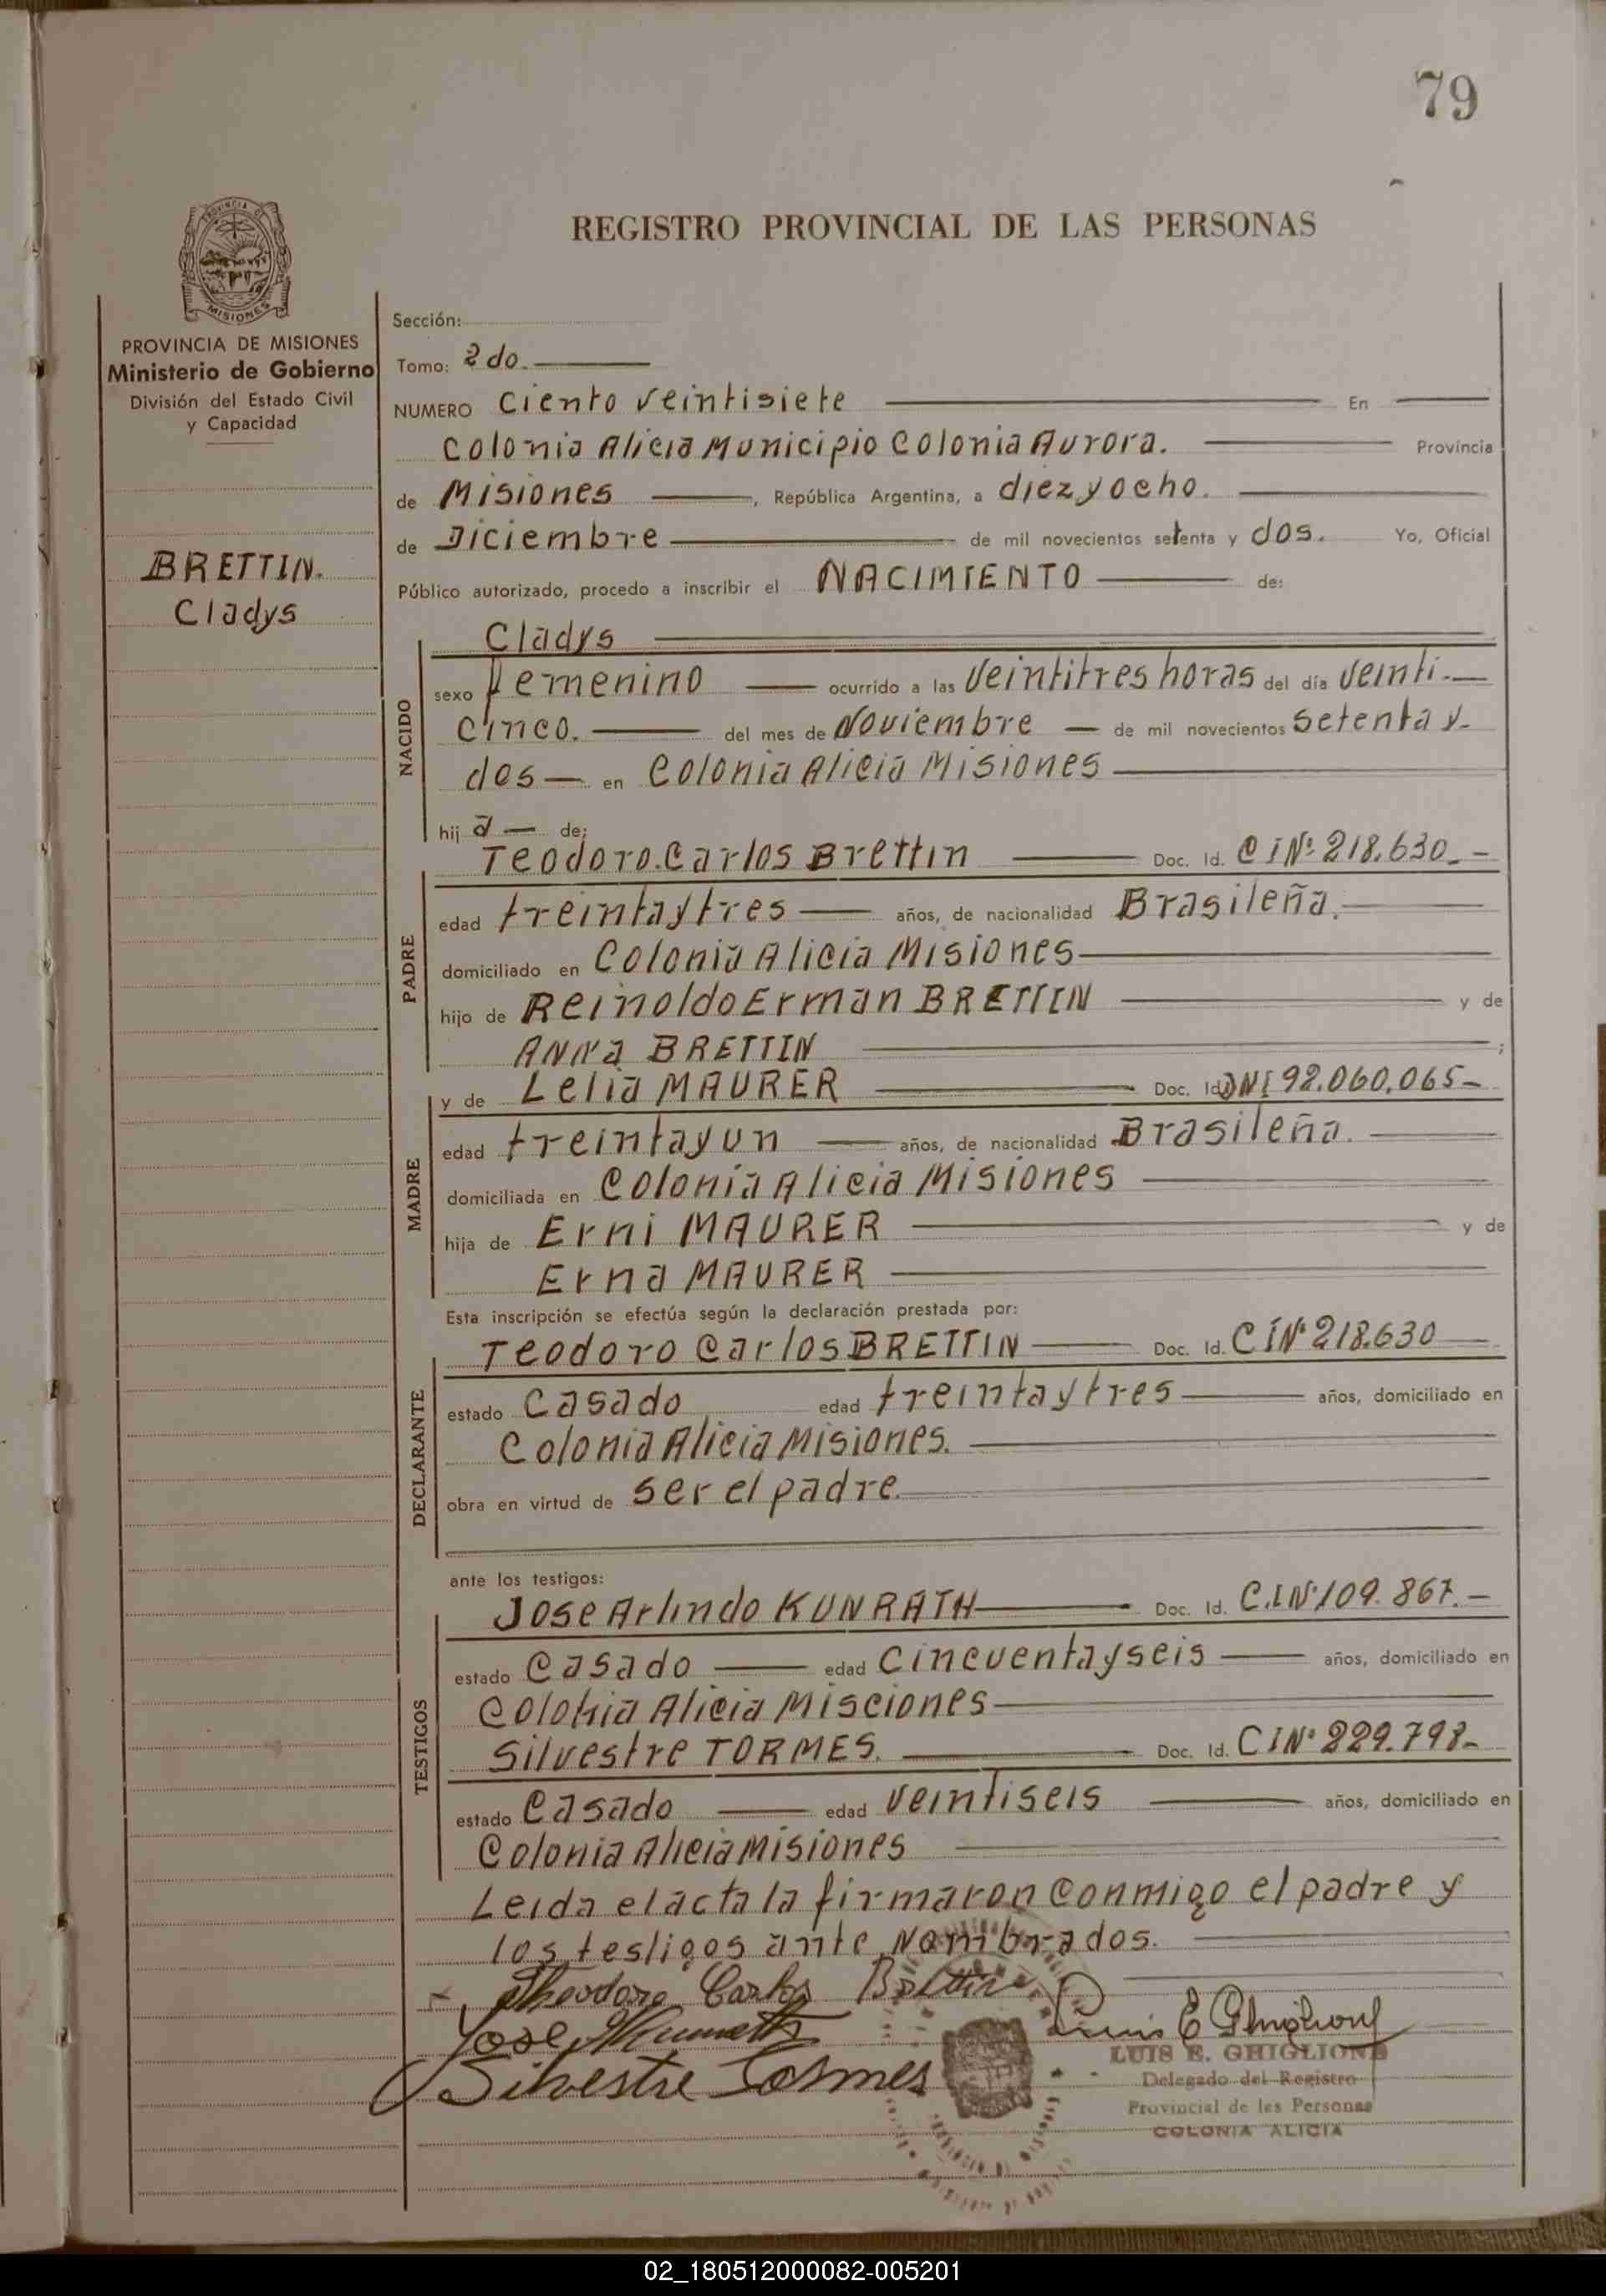 79
REGISTRO PROVINCIAL DE LAS PERSONAS
PROVINCIA DE
MISIONES
PROVINCIA DE MISIONES
Ministerio de Gobierno
División del Estado Civil
y Capacidad
BRETTIN.
Cladys
Sección:
Tomo: 2do.
NUMERO Ciento veintisiete En
Colonia Alicia Municipio Colonia Aurora. Provincia
de Misiones, República Argentina, a diez y ocho.
de Diciembre de mil novecientos setenta y dos. Yo, Oficial
Público autorizado, procedo a inscribir el NACIMIENTO de:
NACIDO
Cladys
sexo Femenino ocurrido a las Veintitres horas del día Veinti-
cinco. del mes de Noviembre de mil novecientos Setenta y-
dos en Colonia Alicia Misiones
hij a de;
PADRE
Teodoro.Carlos Brettin Doc. Id. C I Nº 218.630.-
edad treinta y tres años, de nacionalidad Brasileña.
domiciliado en Colonia Alicia Misiones
hijo de Reinoldo Erman BRETTIN y de
ANNa BRETTIN ;
MADRE
y de Lelia MAURER Doc. Id. DNI 92.060.065-
edad treinta y un años, de nacionalidad Brasileña.
domiciliada en Colonia Alicia Misiones
hija de Erni MAURER y de
Erna MAURER
Esta inscripción se efectúa según la declaración prestada por:
DECLARANTE
Teodoro Carlos BRETTIN Doc. Id. C I Nº 218.630
estado Casado edad treinta y tres años, domiciliado en
Colonia Alicia Misiones.
obra en virtud de ser el padre.
ante los testigos:
TESTIGOS
Jose Arlindo KUNRATH Doc. Id. C.I.Nº 109.867.-
estado Casado edad Cincuenta y seis años, domiciliado en
Colonia Alicia Misciones
Silvestre TORMES. Doc. Id. C I Nº 229.798-
estado Casado edad Veintiseis años, domiciliado en
Colonia Alicia Misiones
Leida el acta la firmaron conmigo el padre y
los testigos ante Nombrados.
Theodoro Carlos Brettin
Jose
Silvestre Tormes
Luis E Ghiglione
LUIS E. GHIGLIONE
Delegado del Registro
Provincial de les Personas
COLONIA ALICIA
02_180512000082-005201